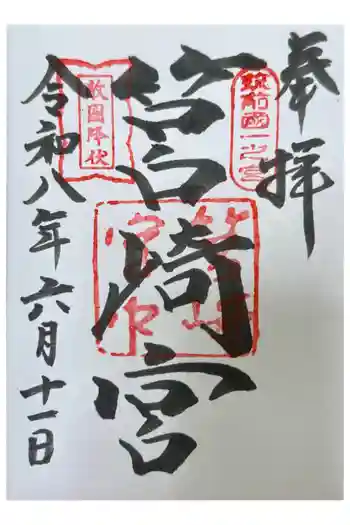 奉拝
筑前國一之宮
筥崎宮
敵國降伏
令和八年六月十一日